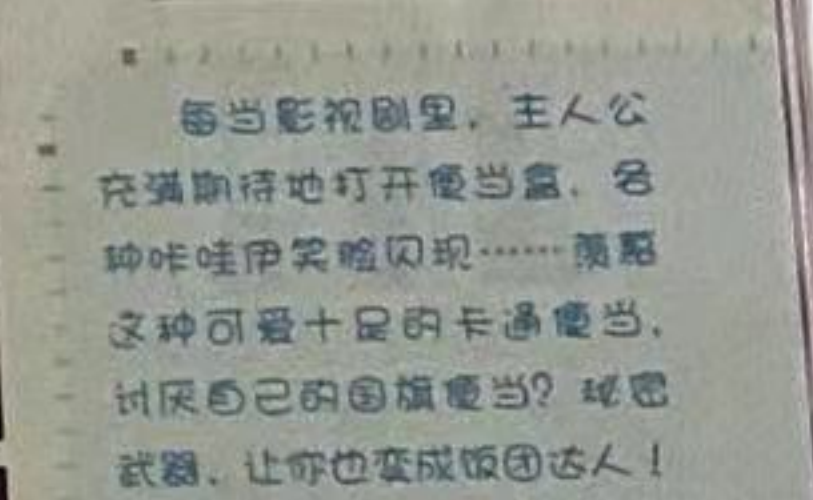 每当影视剧里，主人公
充满期待地打开便当盒，各
种咔哇伊笑脸闪现……羡慕
这种可爱十足的卡通便当，
讨厌自己的国旗便当？秘密
武器，让你也变成饭团达人！